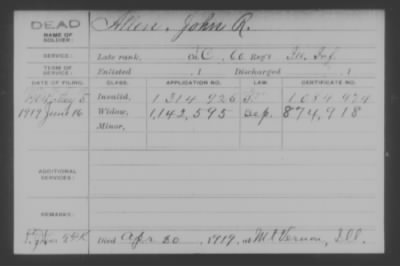 DEAD
NAME OF SOLDIER: Allen, John R.
SERVICE: Late rank, C, 60 Reg't Ill. Inf.
TERM OF SERVICE: Enlisted , 1 Discharged , 1
DATE OF FILING. CLASS. APPLICATION NO. LAW. CERTIFICATE NO.
May 5 Invalid, 1,314,926 1,084,474
1919 June 16 Widow, 1,142,595 Sep. 874,918
Minor,
ADDITIONAL SERVICES:
REMARKS:
Died Apr 20, 1919, at Mt Vernon, Ill.